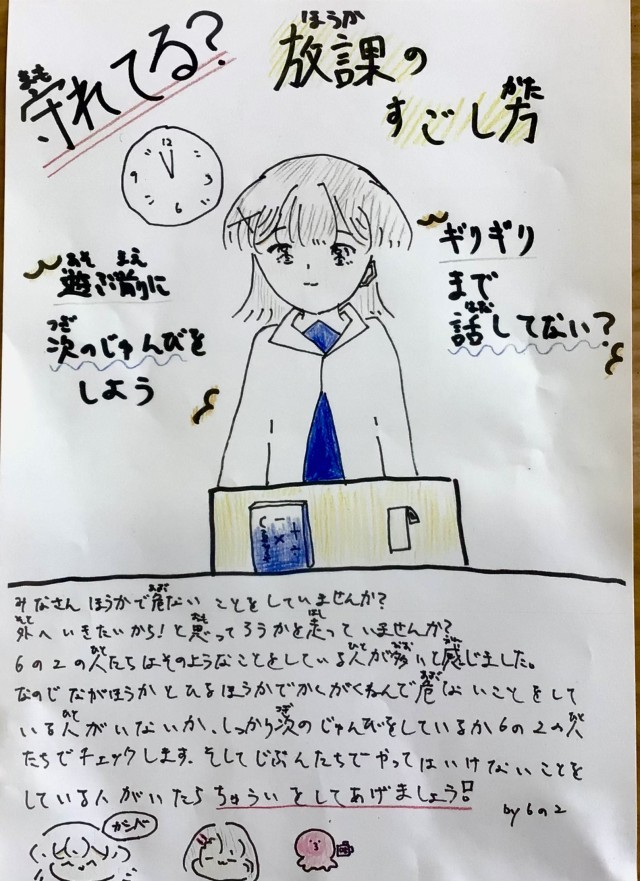 守れてる?
放課の
すごし方
12
3
6
9
遊ぶ前に
次のじゅんびを
しよう
ギリギリ
まで
話してない?
みなさんほうかで危ないことをしていませんか?
外へいきたいから!と思ってろうかを走っていませんか?
6の2の人たちはそのようなことをしている人が多いと感じました。
なのでながほうかとひるほうかでかくがくねんで危ないことをして
いる人がいないか、しっかり次のじゅんびをしているか6の2の人
たちでチェックします。そしてじぶんたちでやってはいけないことを
している人がいたらちゅういをしてあげましょう!
by 6の2